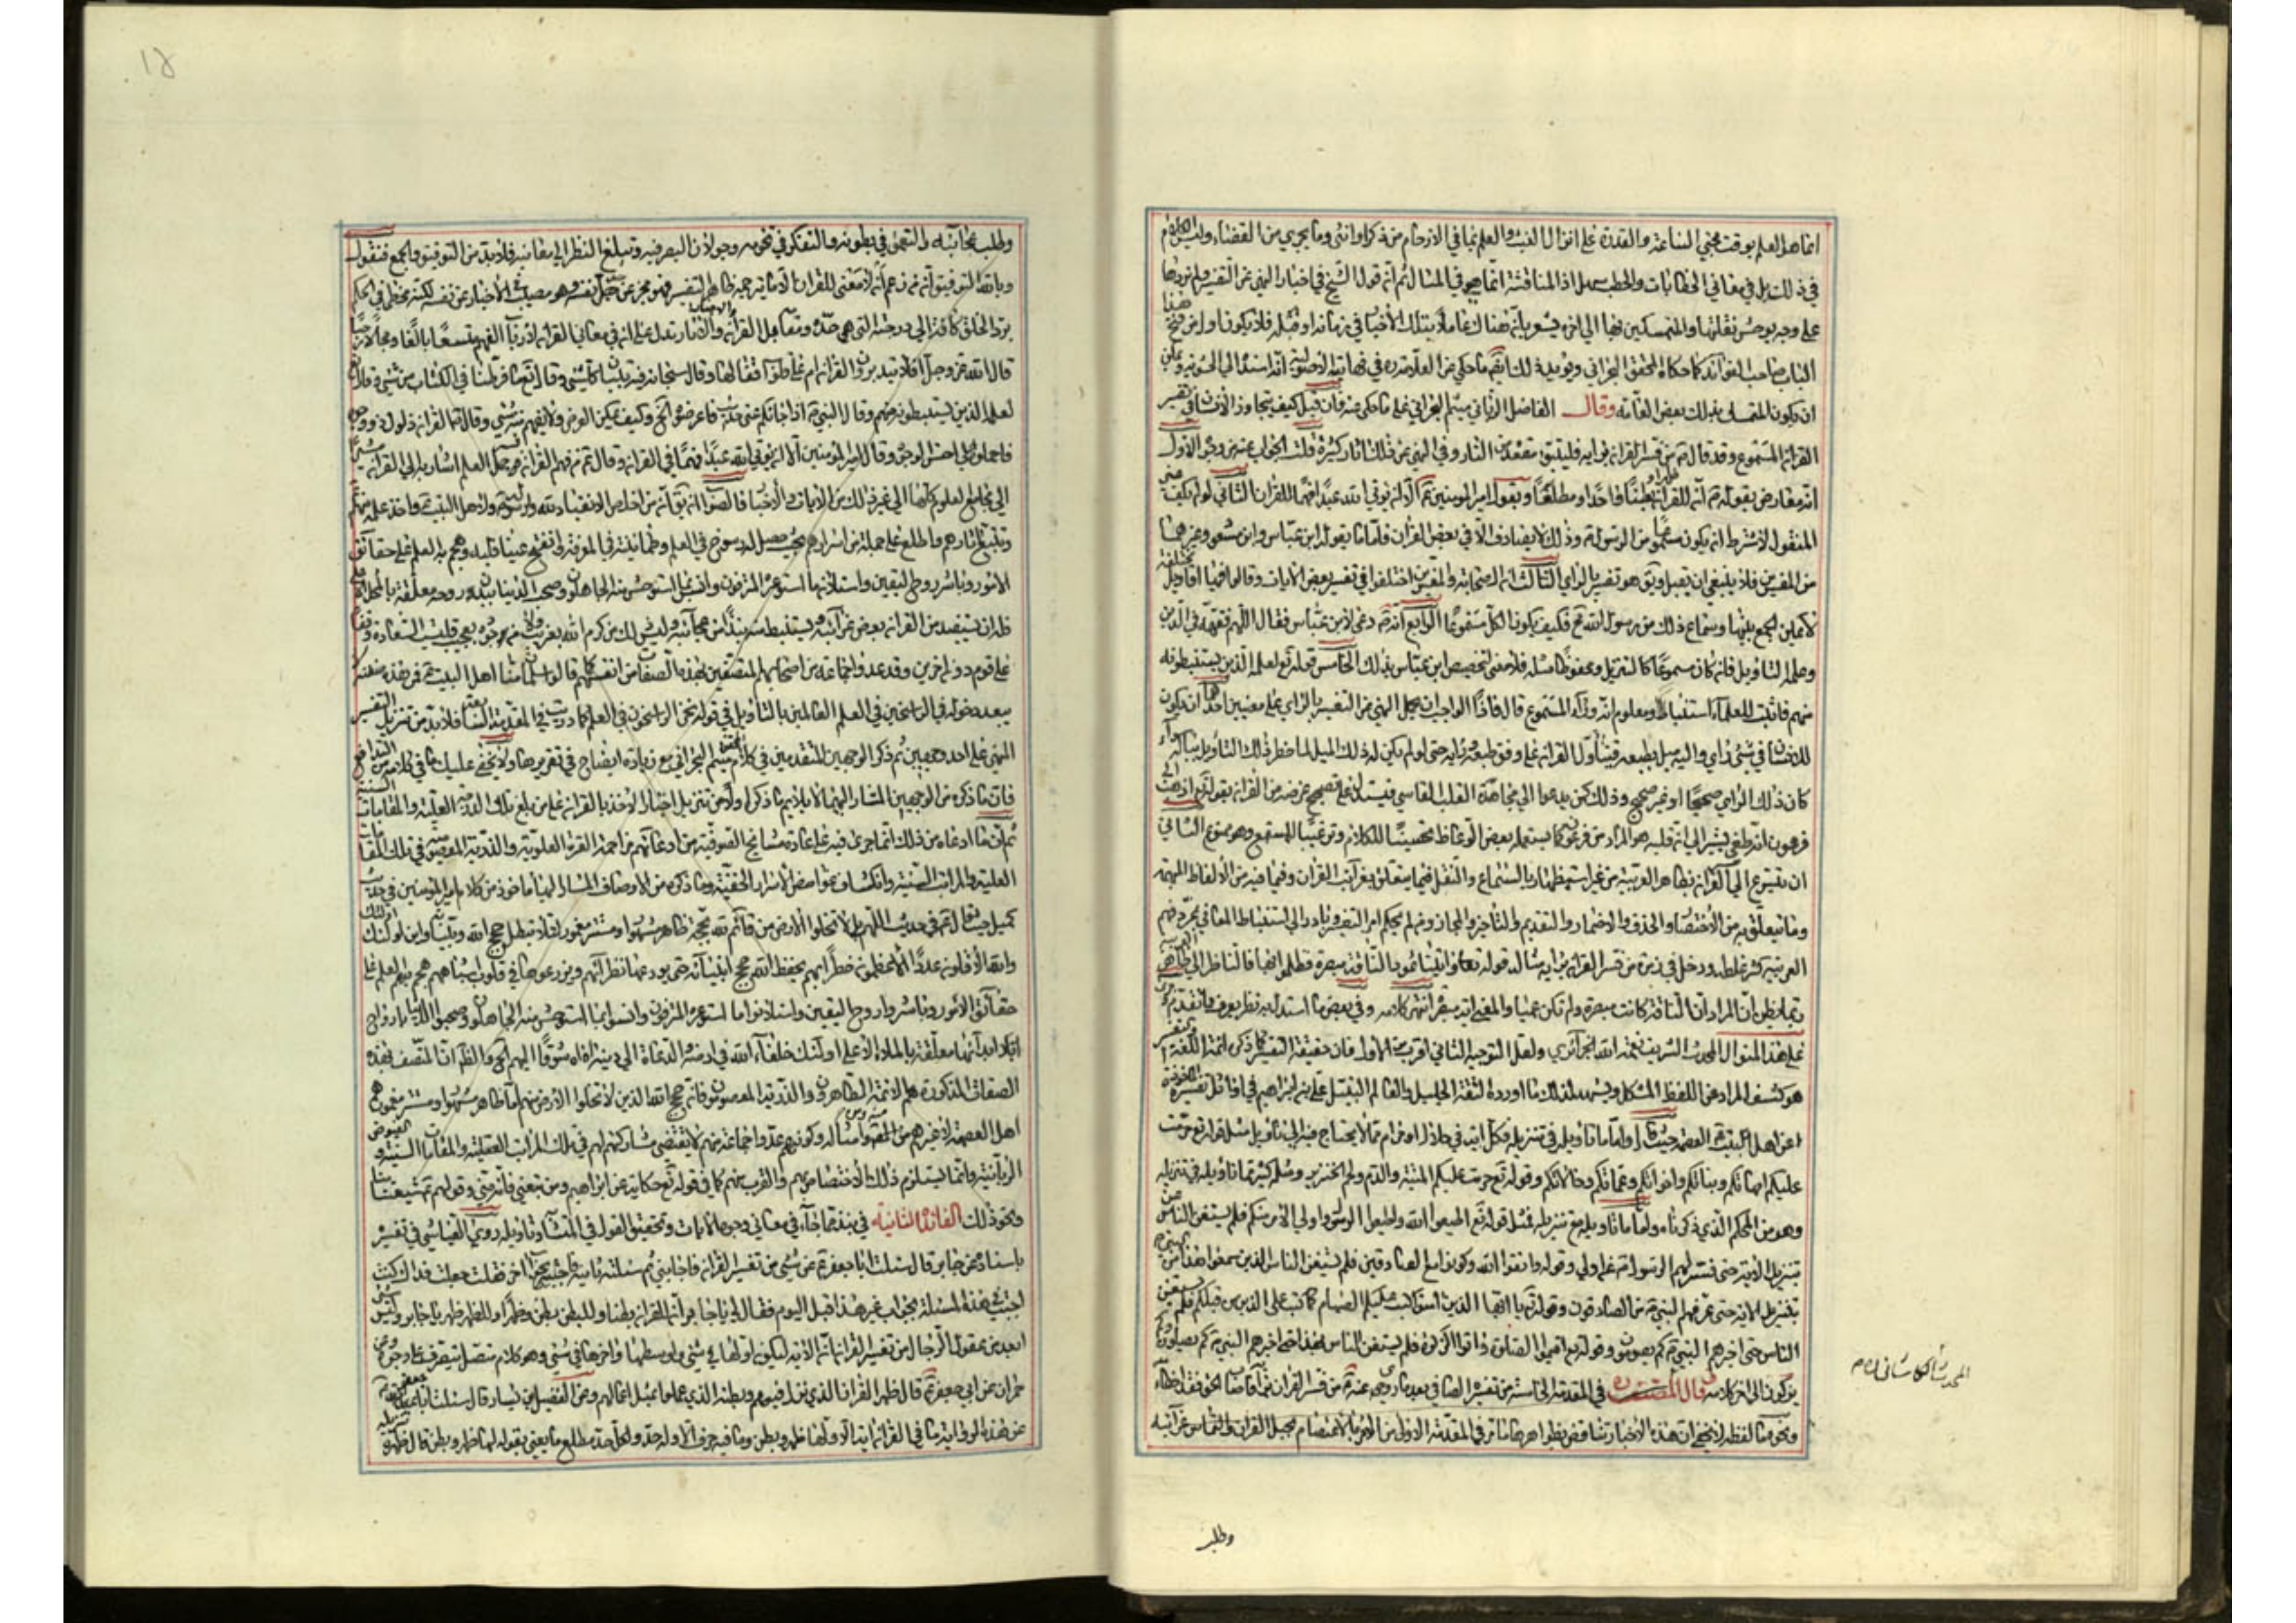 انما هو العلم بوقت مجيء الساعة والقدرة على انزال الغيث والعلم بما في الارحام من ذكر او انثى وما يجري من القضاء وليس الكلام
في ذلك بل في معاني الخطابات والخطب سهل اذ المناقشة انما هي في المثال ثم انه قول الشيخ في اخبار النهي عن التفسير ولم نوردها
على وجه يوحش نقلتها والمتمسكين بها الى اخره يشعر بانه هناك عاملا بتلك الاخبار في زمانه او قبله فلا يكون اول من فتح هذا
الباب صاحب الفوائد كما حكاه المحقق البحراني ويؤيد ذلك ايضا ما حكي عن العلامة ره في نهايته الاصولية انه اسند الى الحشوية
ان يكون المتمسك بذلك بعض العامة وقال الفاضل الرباني ميثم البحراني على ما حكي عنه فان قيل كيف يتجاوز الانسان في تفسير
القرآن المسموع وقد قال ص من فسر القرآن برايه فليتبوء مقعده من النار وفي النهي عن ذلك اثار كثيرة قلت الجواب عنه من وجوه الاول
انه معارض بقوله ص انه للقرآن ظهرا وبطنا وحدا ومطلعا وبقول امير المؤمنين ع الا ان يؤتي الله عبدا فهما للقرآن الثاني لو لم يكف
المنقول لاشترط ان يكون مسموعا من الرسول ص وذلك لا يصادف الا في بعض القرآن فاما ما يقوله ابن عباس وابن مسعود وغيرهما
من المفسرين فلا ينبغي ان يقبل ويق هو تفسير بالراي الثالث ان الصحابة والمفسرين اختلفوا في تفسير بعض الايات وقالوا فيها اقاويل مختلفة
لا يمكن الجمع بينها وسماع ذلك من رسول الله مح فكيف يكون الكل مسموعا الرابع انه ص دعى لابن عباس فقال اللهم فقهه في الدين
وعلمه التاويل فان كان مسموعا كالتنزيل ومحفوظا مثله فلا معنى لتخصيص ابن عباس بذلك الخامس قوله تع لعلمه الذين يستنبطونه
منهم فاثبت للعلماء استنباطا ومعلوم انه وراء المسموع قال فاذا الواجب ان يحمل النهي عن التفسير بالراي على معنيين احدهما ان يكون
للانسان في شيء راي واليه ميل بطبعه فيتاول القرآن على وفق طبعه ورايه حتى لو لم يكن له ذلك الميل لما خطر ذلك التاويل بباله سواء
كان ذلك الراي صحيحا او غير صحيح وذلك كمن يدعوا الى مجاهدة القلب القاسي فيستدل على تصحيح غرضه من القرآن بقوله تع اذهب الى
فرعون انه طغى يشير الى انه قلبه هو المراد من فرعون كما يستعمله بعض الوعاظ تحسينا للكلام وترغيبا للمستمع وهو ممنوع الثاني
ان يتسرع الى القرآن بظاهر العربية من غير استظهار بالسماع والنقل فيما يتعلق بغرائب القرآن وفيما فيه من الالفاظ المبهمة
وما يتعلق به من الاختصار والحذف والاضمار والتقديم والتاخير والمجاز ومن لم يحكم ظاهر التفسير وبادر الى استنباط المعاني بمجرد فهم
العربية كثر غلطه ودخل في زمرة من فسر القرآن برايه مثاله قوله تعا واتينا ثمود الناقة مبصرة فظلموا بها فالناظر الى ظاهر العربية
ربما يظن ان المراد ان الناقة كانت مبصرة ولم تكن عمياء والمعنى اية مبصرة انتهى كلامه وفي بعض ما استدل به نظر يعرف مما تقدم
على هذا المنوال المحدث الشريف نعمة الله الجزائري ولعل التوجيه الثاني اقرب من الاول فان حقيقة التفسير كما ذكره ائمة اللغة
هو كشف المراد عن اللفظ المشكل ويشهد لذلك ما اورده الثقة الجليل والعالم النبيل علي بن ابراهيم في اوائل تفسيره
عليكم امهاتكم وبناتكم واخواتكم وعماتكم وخالاتكم وقوله تع حرمت عليكم الميتة والدم ولحم الخنزير ومثله كثير مما تاويله في تنزيله
وهو من المحكم الذي ذكرناه واما ما تاويله مع تنزيله فمثل قوله تع اطيعوا الله واطيعوا الرسول واولي الامر منكم فلم يستغن الناس
بتنزيل الاية حتى فسر لهم الرسول ص من اولي الامر وقوله واتقوا الله وكونوا مع الصادقين فلم يستغن الناس الذين سمعوا هذا من النبي ص
بتنزيل الاية حتى عرفهم النبي ص من الصادقون وقوله تع يا ايها الذين امنوا كتب عليكم الصيام كما كتب على الذين من قبلكم فلم يستغن
الناس حتى اخبرهم النبي ص كم يصومون وقوله تع اقيموا الصلاة واتوا الزكوة فلم يستغن الناس بهذا حتى اخبرهم النبي ص كم يصلون وكم
يزكون الى اخر كلامه وقال المحدث ره في المقدمة الخامسة من تفسيره الصافي بعد ما روى عنه ص من فسر القرآن برايه فاصاب الحق فقد اخطا
ونحوه ما لفظه لا يخفى ان هذه الاخبار تناقض بظواهرها ما مر في المقدمة الاولى من الامر بالاعتصام بحبل القرآن والتماس غرائبه
المحدث الكاشاني
وطلب
١٥
وطلب عجائبه والتعمق في بطونه والتفكر في تخومه وجولان البصر فيه وتبليغ النظر الى معانيه فلا بد من التوفيق والجمع فنقول
وبالله التوفيق انه من زعم انه لا معنى للقرآن الا ما يترجمه ظاهر التفسير فهو مخبر عن حد نفسه وهو مصيب في الاخبار عن نفسه لكنه مخطئ في الحكم
برد الخلق كافة الى درجته التي هي حده ومقامه بل القرآن والاخبار والاثار تدل على ان في معاني القرآن لارباب الفهم متسعا بالغا ومجالا رحبا
قال الله عز وجل افلا يتدبرون القرآن ام على قلوب اقفالها وقال سبحانه فيه تبيان كل شيء وقال تعا ما فرطنا في الكتاب من شيء وقال
لعلمه الذين يستنبطونه منهم وقال النبي ص اذا جاءكم عني حديث فاعرضوه الخ وكيف يمكن العرض ولا يفهم منه شيء وقال ص القرآن ذلول ذو وجوه
فاحملوه على احسن الوجوه وقال امير المؤمنين الا ان يؤتي الله عبدا فهما في القرآن وقال ع من فهم القرآن فسر جمل العلم اشار به الى القرآن مشير
الى مجامع العلوم كلها الى غير ذلك من الايات والاخبار فالصواب ان يق انه من اخلص الانقياد لله ولرسوله ص ولاهل البيت ع واخذ علمه منهم
وتتبع اثارهم واطلع على جملة من اسرارهم بحيث حصل له الرسوخ في العلم والطمانينة في المعرفة وانفتح عينا قلبه وهجم به العلم على حقائق
الامور وباشر روح اليقين واستلان ما استوعره المترفون وانس بما استوحش منه الجاهلون وصحب الدنيا ببدن روحه معلقة بالمحل الاعلى
فله ان يستفيد من القرآن بعض غرائبه ويستنبط منه نبذا من عجائبه وليس ذلك من كرم الله بغريب ولا من جوده بعجيب فليست السعادة وقفا
على قوم دون اخرين وقد عدوا جماعة من اصحابهم المتصفين بهذه الصفات من انفسهم كما قالوا سلمان منا اهل البيت ع فمن هذه صفته
يبعد دخوله في الراسخين في العلم العالمين بالتاويل في قولهم نحن الراسخون في العلم كما دريت في المقدمة الثانية فلا بد من تنزيل التفسير
المنهي على احد وجهين ثم ذكر الوجهين المتقدمين في كلام ميثم البحراني مع زيادة ايضاح في تقريرهما ولا يخفى عليك ما في كلامه من التدافع
فان ما ذكره من الوجهين المشار اليهما لا يلايم ما ذكره اولا من تنزيل اخبار الاخذ بالقرآن على من بلغ تلك الدرجة العلية والمقامات السنية
ثم ان ما ادعاه من ذلك انما جرى فيه على عادة مشايخ الصوفية من ادعائهم مزاحمة العترة العلوية والذرية المعصومية في تلك المقامات
العلية والمراتب السنية وانكشاف غوامض الاسرار الخفية وما ذكره من الاوصاف المشار اليها ماخوذ من كلام امير المؤمنين في حديث
كميل حيث قال ع في حديث اللهم بلى لا تخلوا الارض من قائم لله بحجة ظاهر مشهور او مستتر مغمور لئلا تبطل حجج الله وبيناته واين اولئك
والله الاقلون عددا الاعظمون خطرا بهم يحفظ الله حججه وبيناته حتى يودعها نظرائهم ويزرعوها في قلوب اشباههم هجم بهم العلم على
حقائق الامور وباشروا روح اليقين واستلانوا ما استوعره المترفون وانسوا بما استوحش منه الجاهلون وصحبوا الدنيا بارواح
ابدانها معلقة بالملاء الاعلى اولئك خلفاء الله في ارضه الدعاة الى دينه اه اه شوقا اليهم الخ والظاهر ان المتصف بهذه
الصفات المذكورة هم الائمة الطاهرون والذرية المعصومون فانهم حجج الله الذين لا تخلوا الارض منهم اما ظاهر مشهور او مستتر مغمور
الربانية وانما يستلزم ذلك الاختصاص بهم والقرب منهم كما في قوله تع حكاية عن ابراهيم ومن تبعني فانه مني وقولهم ع شيعتنا منا
ونحو ذلك الفائدة الثانية في نبذة مما جاء في معاني وجوه الايات وتحقيق القول في المتشابه وتاويله روى العياشي في تفسيره
باسناده عن جابر قال سئلت ابا جعفر ع عن شيء من تفسير القرآن فاجابني ثم سئلته ثانية فاجابني بجواب اخر فقلت جعلت فداك كنت
اجبت في هذه المسئلة بجواب غير هذا قبل اليوم فقال لي يا جابر ان للقرآن بطنا وللبطن بطن وظهرا وللظهر ظهر يا جابر وليس شيء
ابعد من عقول الرجال من تفسير القرآن ان الاية ليكون اولها في شيء واوسطها واخرها في شيء وهو كلام متصل يتصرف على وجوه وعن
حمران عن ابي جعفر ع قال ظهر القرآن الذي نزل فيهم وبطنه الذي عملوا بمثل اعمالهم وعن الفضيل بن يسار قال سئلت ابا جعفر ع
عن هذه الرواية ما في القرآن اية الا ولها ظهر وبطن وما فيه حرف الا وله حد ولكل حد مطلع ما يعني بقوله لها ظهر وبطن قال ظهره